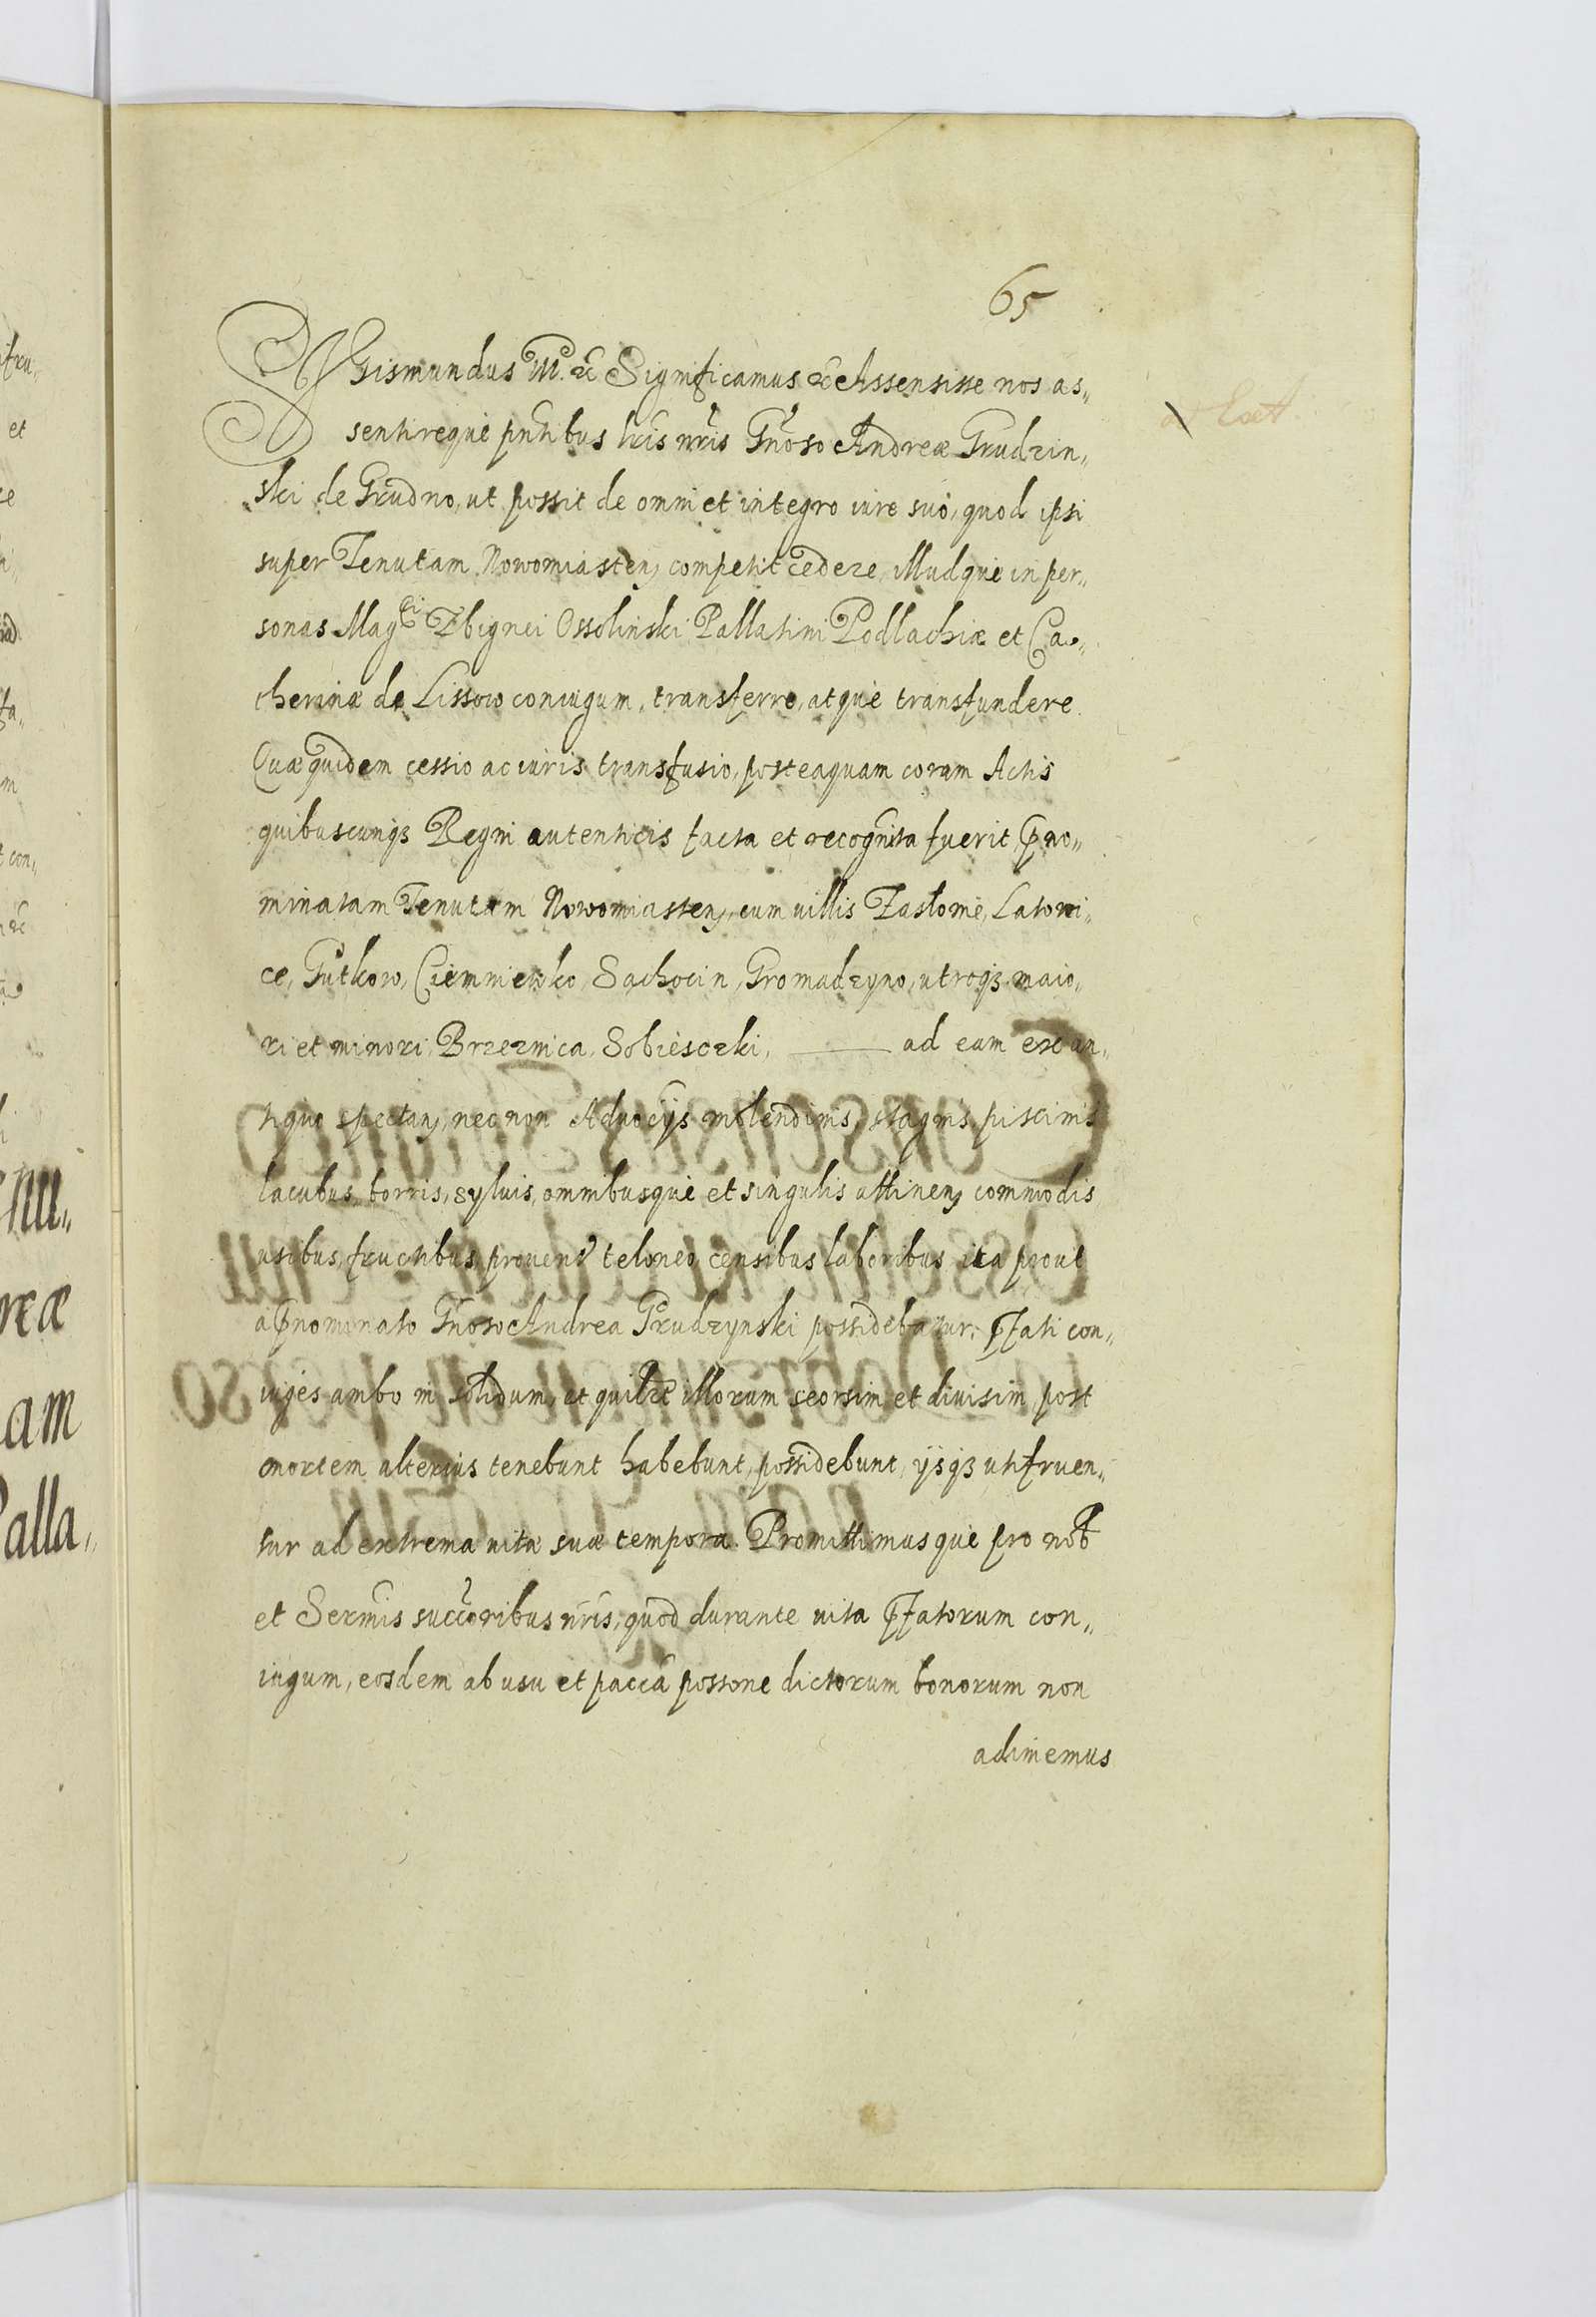 65
SIGismundus III. etc Significamus etc Assensisse nos as„
sentireque pñtibus lris nris Gñoso Andreæ Grudzin„
ski de Grudno, ut possit de omni et integro iure suo, quod ipsi
super Tenutam Nowomiasten, competit cedere, illudque in per„
sonas Magci Zbignei Ossolinski Pallatini Podlachiæ et Ca„
therinæ de Lissow coniugum, transferre, atque transfundere.
Quæquidem cessio ac iuris transfusio, posteaquam coram Actis
quibuscunqȝ Regni autenticis facta et recognita fuerit, pno„
minatam Tenutam Nowomiasten, cum villis Zaslome, Latowi„
ce, Gutkow, Ciemniewko, Sachocin, Gromadzyno, utroqȝ maio„
ri et minori, Brzeznica, Sobiesczki, ——— ad eam ex an„
tiquo spectan, necnon Aduocijs molendinis, stagnis, piscinis
lacubus, borris, syluis, omnibusque et singulis attinen, commodis
usibus, fructibus, prouent teloneo, censibus laboribus ita prout
a pnominato Gñoso Andrea Grudzynski possidebatur, pfati con„
iuges ambo in solidum, et quilibet illorum seorsim et diuisim, post
mortem alterius tenebunt habebunt, possidebunt, ijsqȝ utifruen„
tur ad extrema uitæ suæ tempora. Promittimusque pro nob
et Sermis succoribus nris, quod durante uita pfatorum con„
iugum, eosdem ab usu et pacca possone dictorum bonorum non
adimemus